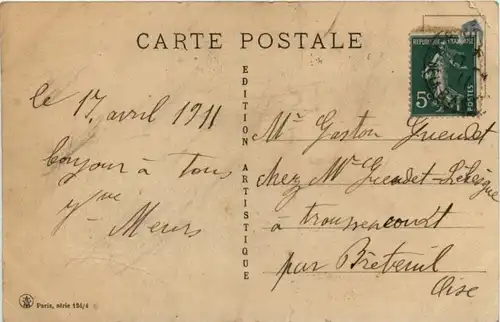 CARTE POSTALE
EDITION ARTISTIQUE
le 17 avril 1911
bonjour à tous
Mr Gaston Gueudet
chez Mr Gueudet-
à troussencourt
par Breteuil
Oise
REPUBLIQUE FRANÇAISE
5c
POSTES
Paris, série 124/4